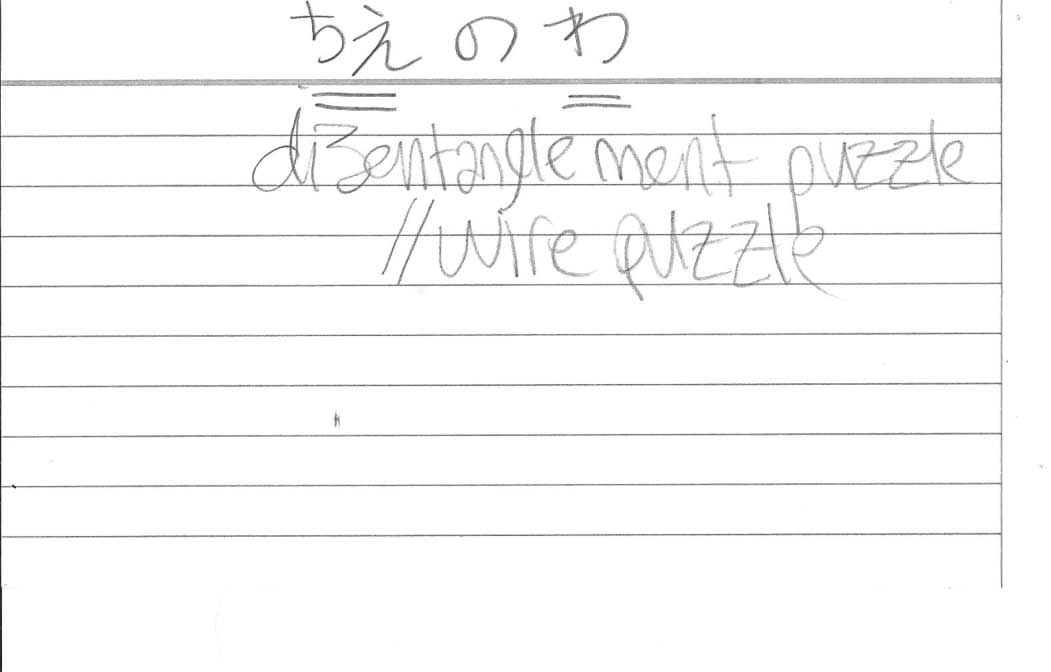 ちえのわ
disentanglement puzzle
//wire puzzle